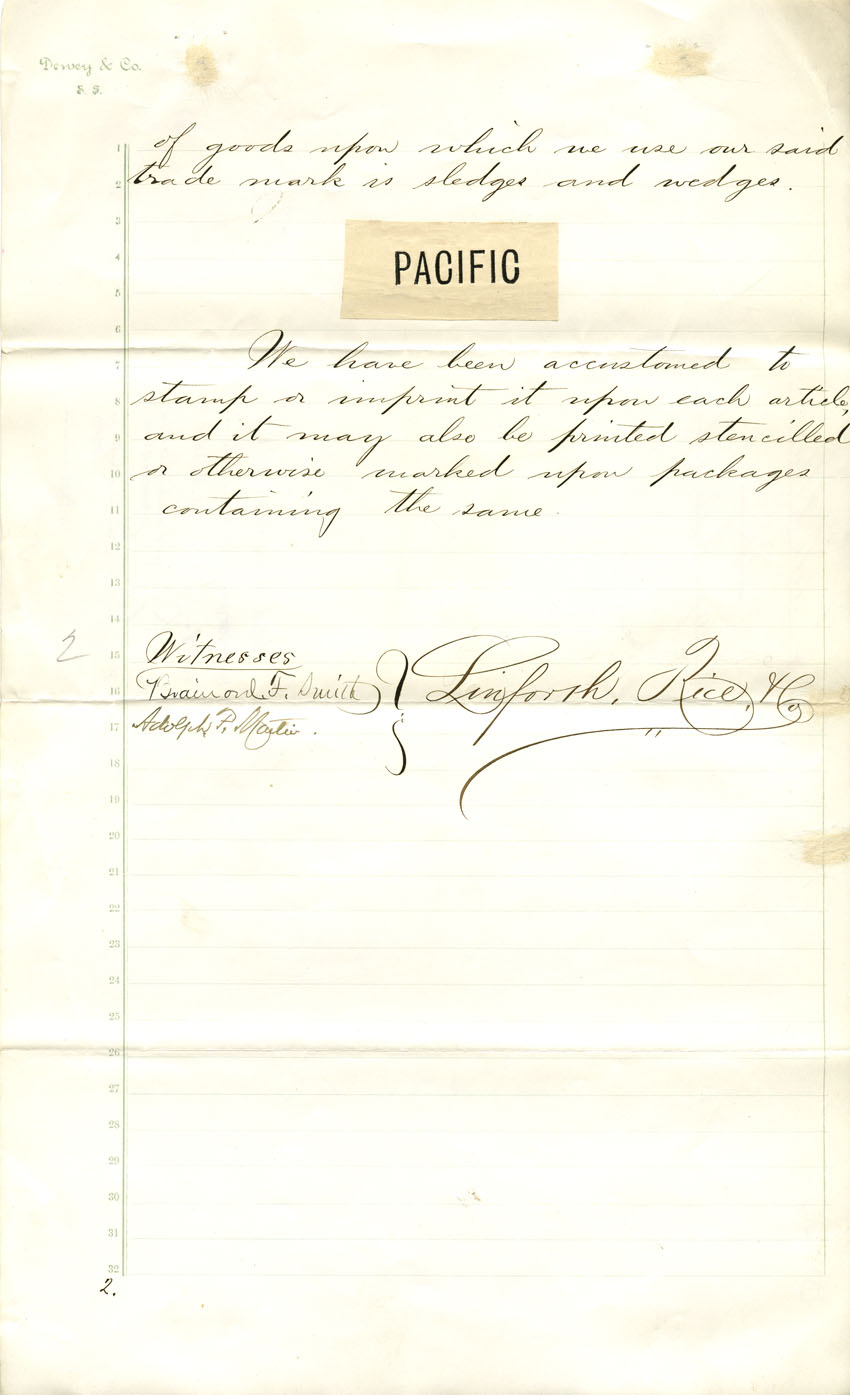 Dewey & Co.
S. F.
1 of goods upon which we use our said
2 trade mark is sledges and wedges.
3
4 PACIFIC
5
6
7 We have been accustomed to
8 stamp or imprint it upon each article,
9 and it may also be printed stencilled
10 or otherwise marked upon packages
11 containing the same.
12
13
14
2
15 Witnesses
16 Brainard F. Smith } Linforth, Rice, & Co
17 Adolph P.
18
19
20
21
22
23
24
25
26
27
28
29
30
31
32
2.